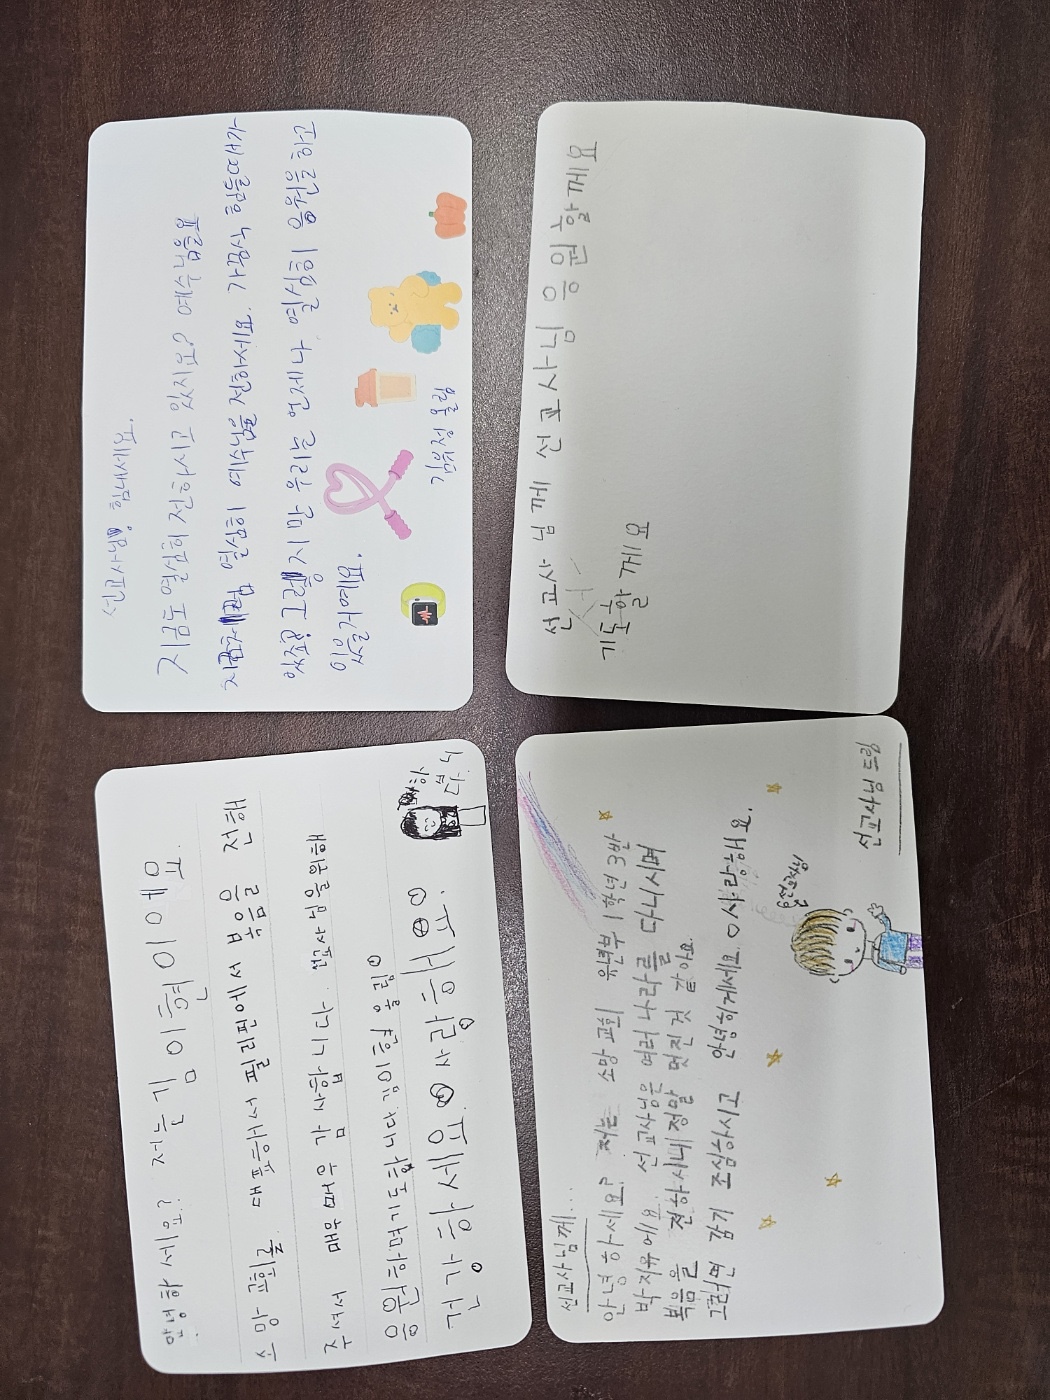 선교사님 힘내세요.
지금도 열심히 전하시고 있지요? 예수님을요
열심히 예수님을 전하세요. 가끔식 힘들때가
있겠지만 그래도 우리는 언제나 열심히 응원을 하고
있을거예요.
김설율
선교사님께 선교사님 응원할께요
기도할께요
안녕하세요? 저는 김이현이에요.
소망 교회를 대표해서 필리핀에서 복음을 전해
주셔서 매우매우 감사합니다. 선교사님을 위해
응원하며 기도하겠습니다. 김이현 올림
건강하세요 사랑해요.
선교사님께...
안녕하세요? 저는 소망교회 유년부 1학년 3반
박지유에요. 선교사님은 여러 나라를 다니시며
복음을 전하시니 정말 멋진 것 같아요.
그러면 감기 조심하시고 안녕히계세요. 사랑해요.
선교사님